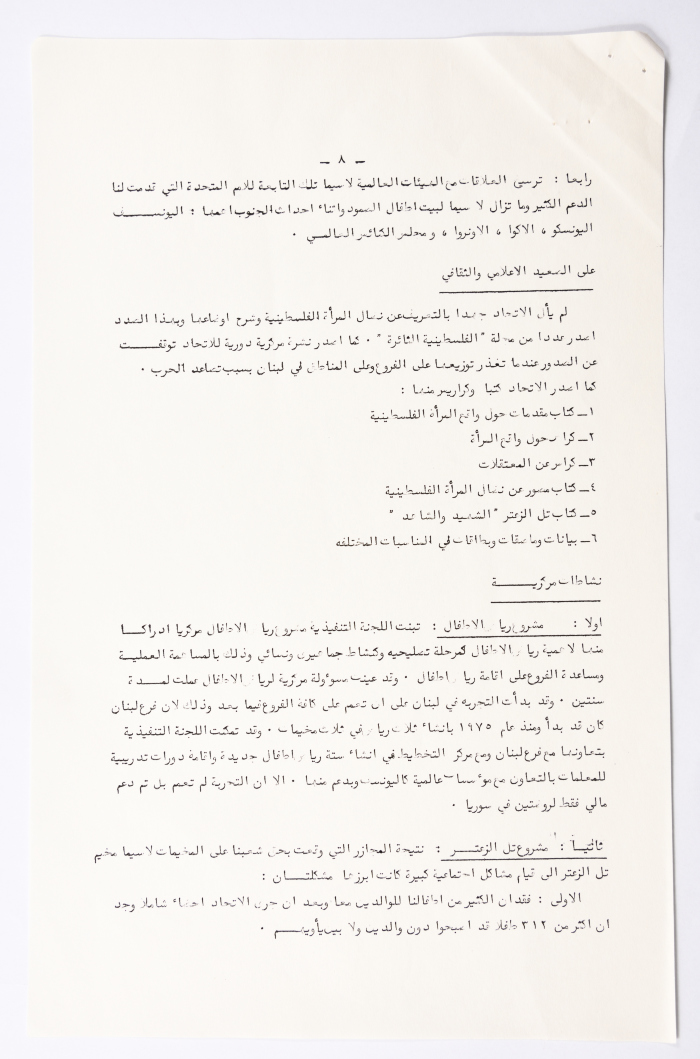 - ٨ -
رابعا : ترسى العلاقات مع الهيئات العالمية لاسيما تلك التابعة للامم المتحدة التي قدمت لنا
الدعم الكثير وما تزال لا سيما لبيت اطفال الصمود واثناء احداث الجنوب اهمها : اليونسف
اليونسكو ، الاكوا ، الاونروا ، ومجلس الكنائس العالمي .
على الصعيد الاعلامي والثقافي
لم يأل الاتحاد جهدا بالتعريف عن نضال المرأة الفلسطينية وشرح اوضاعها وبهذا الصدد
اصدر عددا من مجلة "الفلسطينية الثائرة " . كما اصدر نشرة مركزية دورية للاتحاد توقفت
عن الصدور عندما تعذر توزيعها على الفروع وعلى المناطق في لبنان بسبب تصاعد الحرب .
كما اصدر الاتحاد كتبا وكراريس منها :
١- كتاب مقدمات حول واقع المرأة الفلسطينية
٢- كراس حول واقع المرأة
٣- كراس عن المعتقلات
٤- كتاب مصور عن نضال المرأة الفلسطينية
٥- كتاب تل الزعتر "الشهيد والشاهد "
٦- بيانات وملصقات وبطاقات في المناسبات المختلفه
نشاطات مركزية
اولا : مشروع رياض الاطفال : تبنت اللجنة التنفيذية مشروع رياض الاطفال مركزيا ادراكا
منها لاهمية رياض الاطفال كمرحلة تعليميه وكنشاط جماهيري ونسائي وذلك بالمساهمة العملية
ومساعدة الفروع على اقامة رياض اطفال . وقد عينت مسؤولة مركزية لرياض الاطفال عملت لمدة
سنتين . وقد بدأت التجربه في لبنان على ان تعمم على كافة الفروع فيما بعد وذلك لان فرع لبنان
كان قد بدأ ومنذ عام ١٩٧٥ بانشاء ثلاث رياض في ثلاث مخيمات . وقد تمكنت اللجنة التنفيذية
بتعاونها مع فرع لبنان ومع مركز التخطيط في انشاء ستة رياض اطفال جديدة واقامة دورات تدريبية
للمعلمات بالتعاون مع مؤسسات عالمية كاليونسف وبدعم منها . الا ان التجربة لم تعمم بل تم دعم
مالي فقط لروضتين في سوريا .
ثانيا : مشروع تل الزعتر : نتيجة المجازر التي وقعت بحق شعبنا على المخيمات لاسيما مخيم
تل الزعتر الى قيام مشاكل اجتماعية كبيرة كانت ابرزها مشكلتان :
الاولى : فقدان الكثير من اطفالنا للوالدين معا وبعد ان جرى الاتحاد احصاء شاملا وجد
ان اكثر من ٣١٢ طفلا قد اصبحوا دون والدين ولا بيت يأويهم .